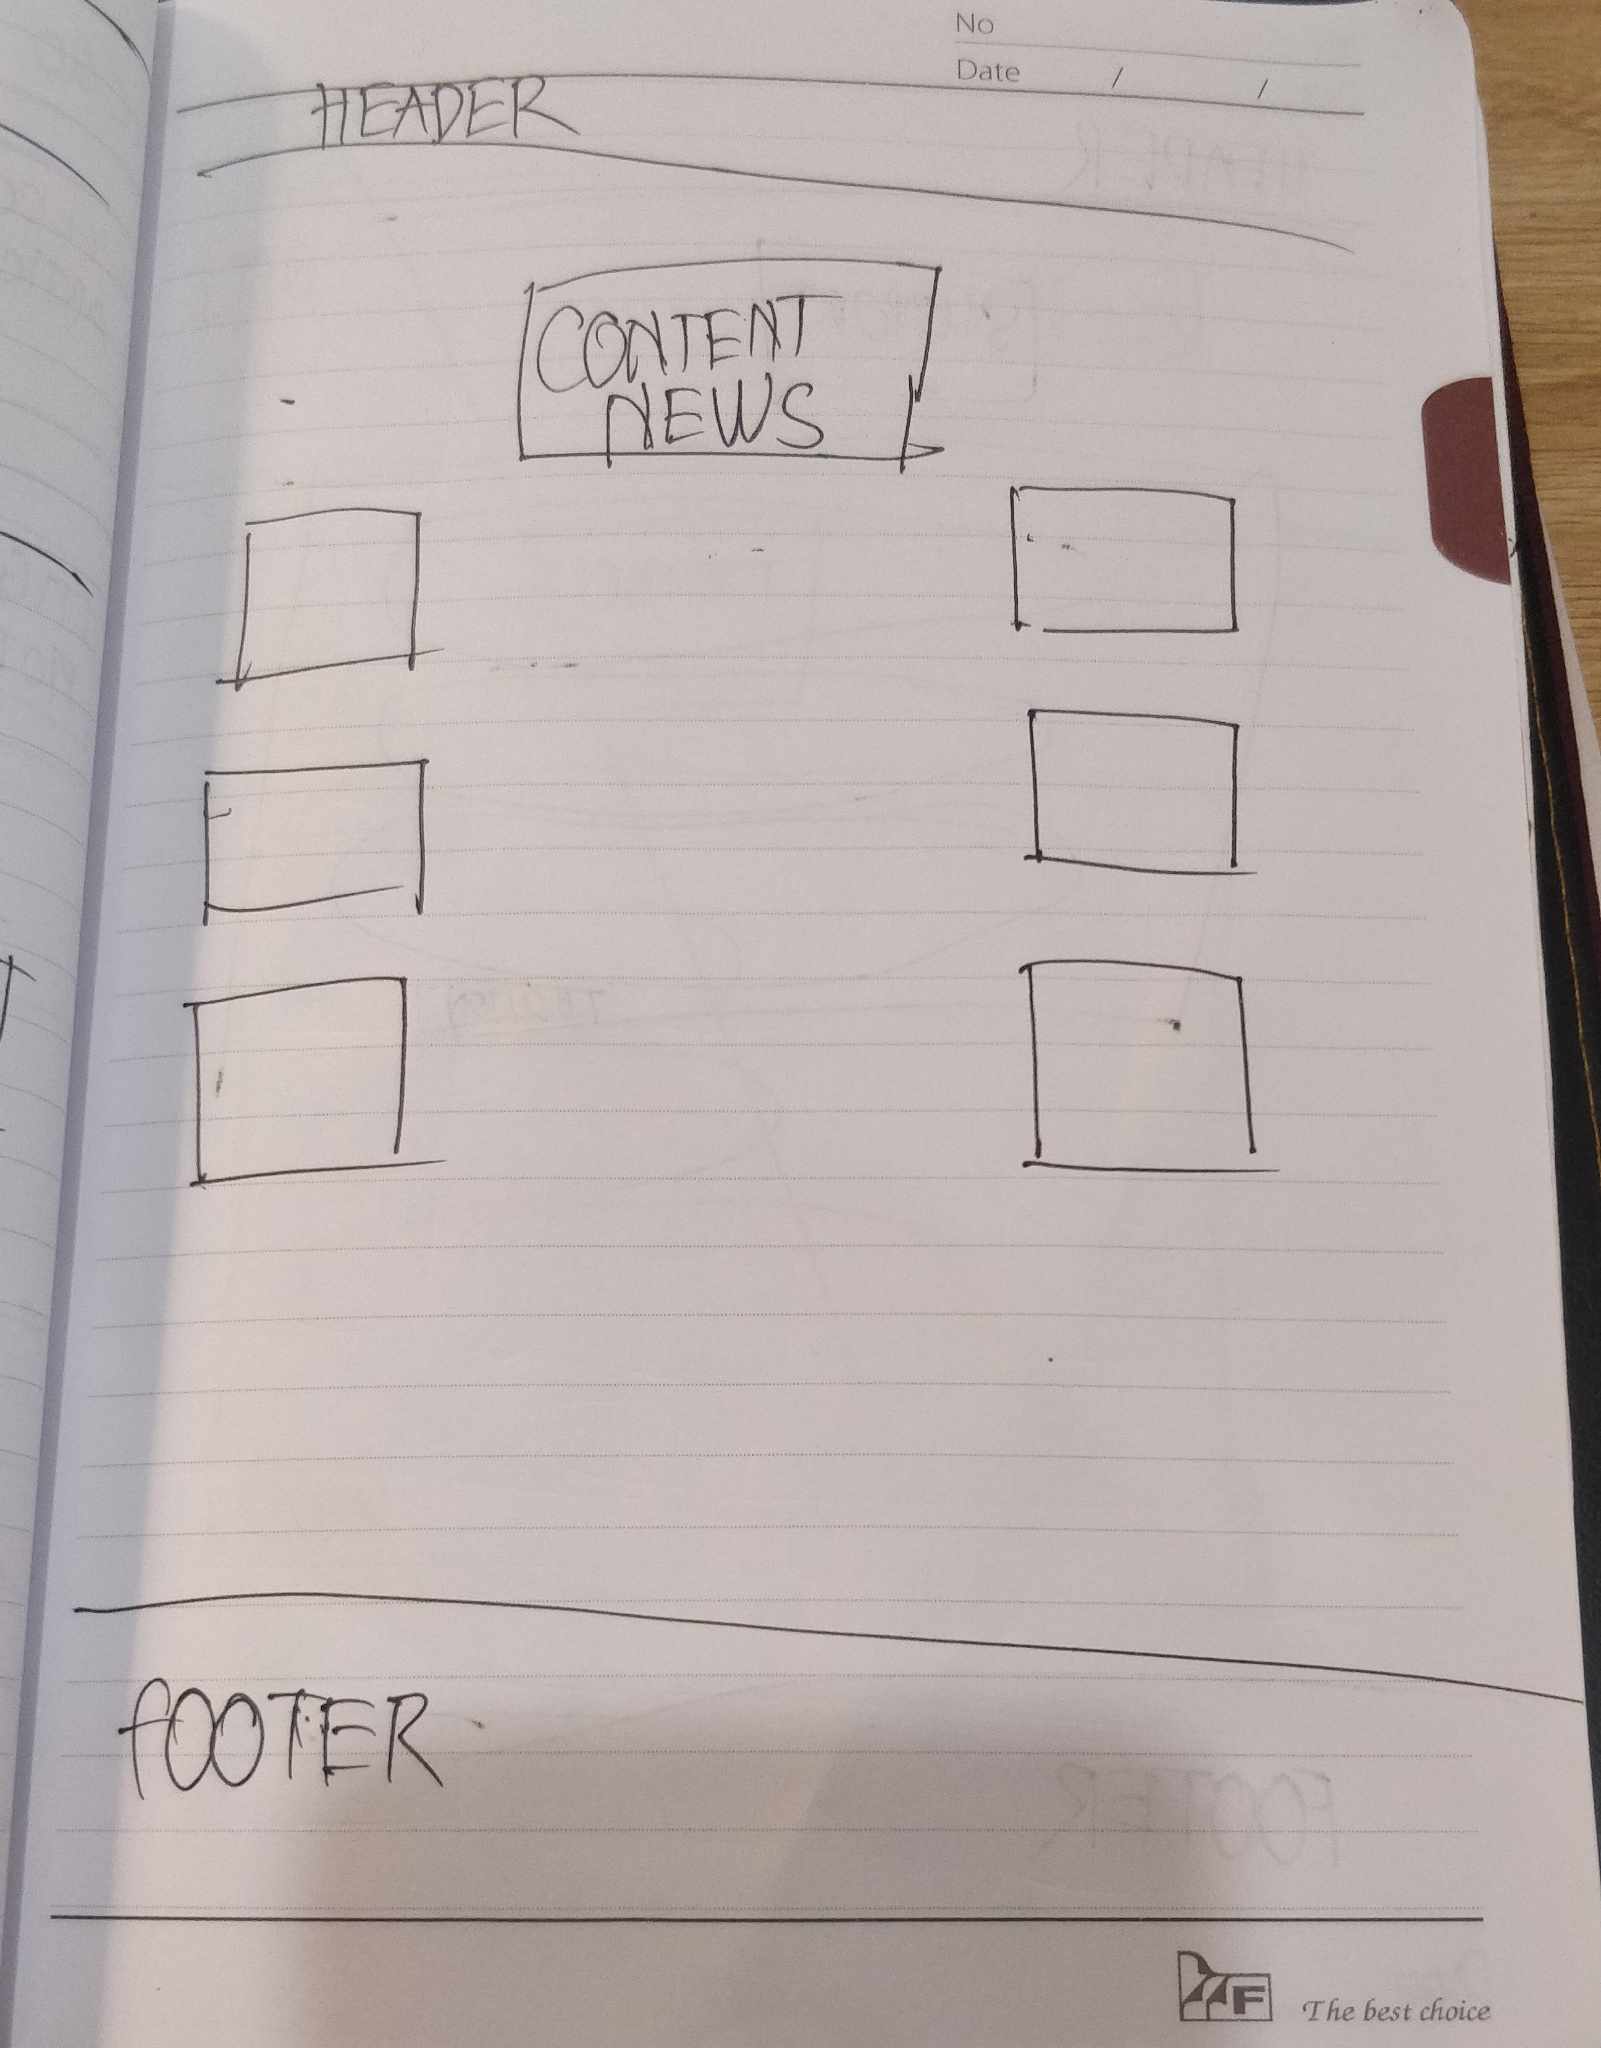 No
Date / /
HEADER
CONTENT
NEWS
fOOTER
FOOTER
F
The best choice